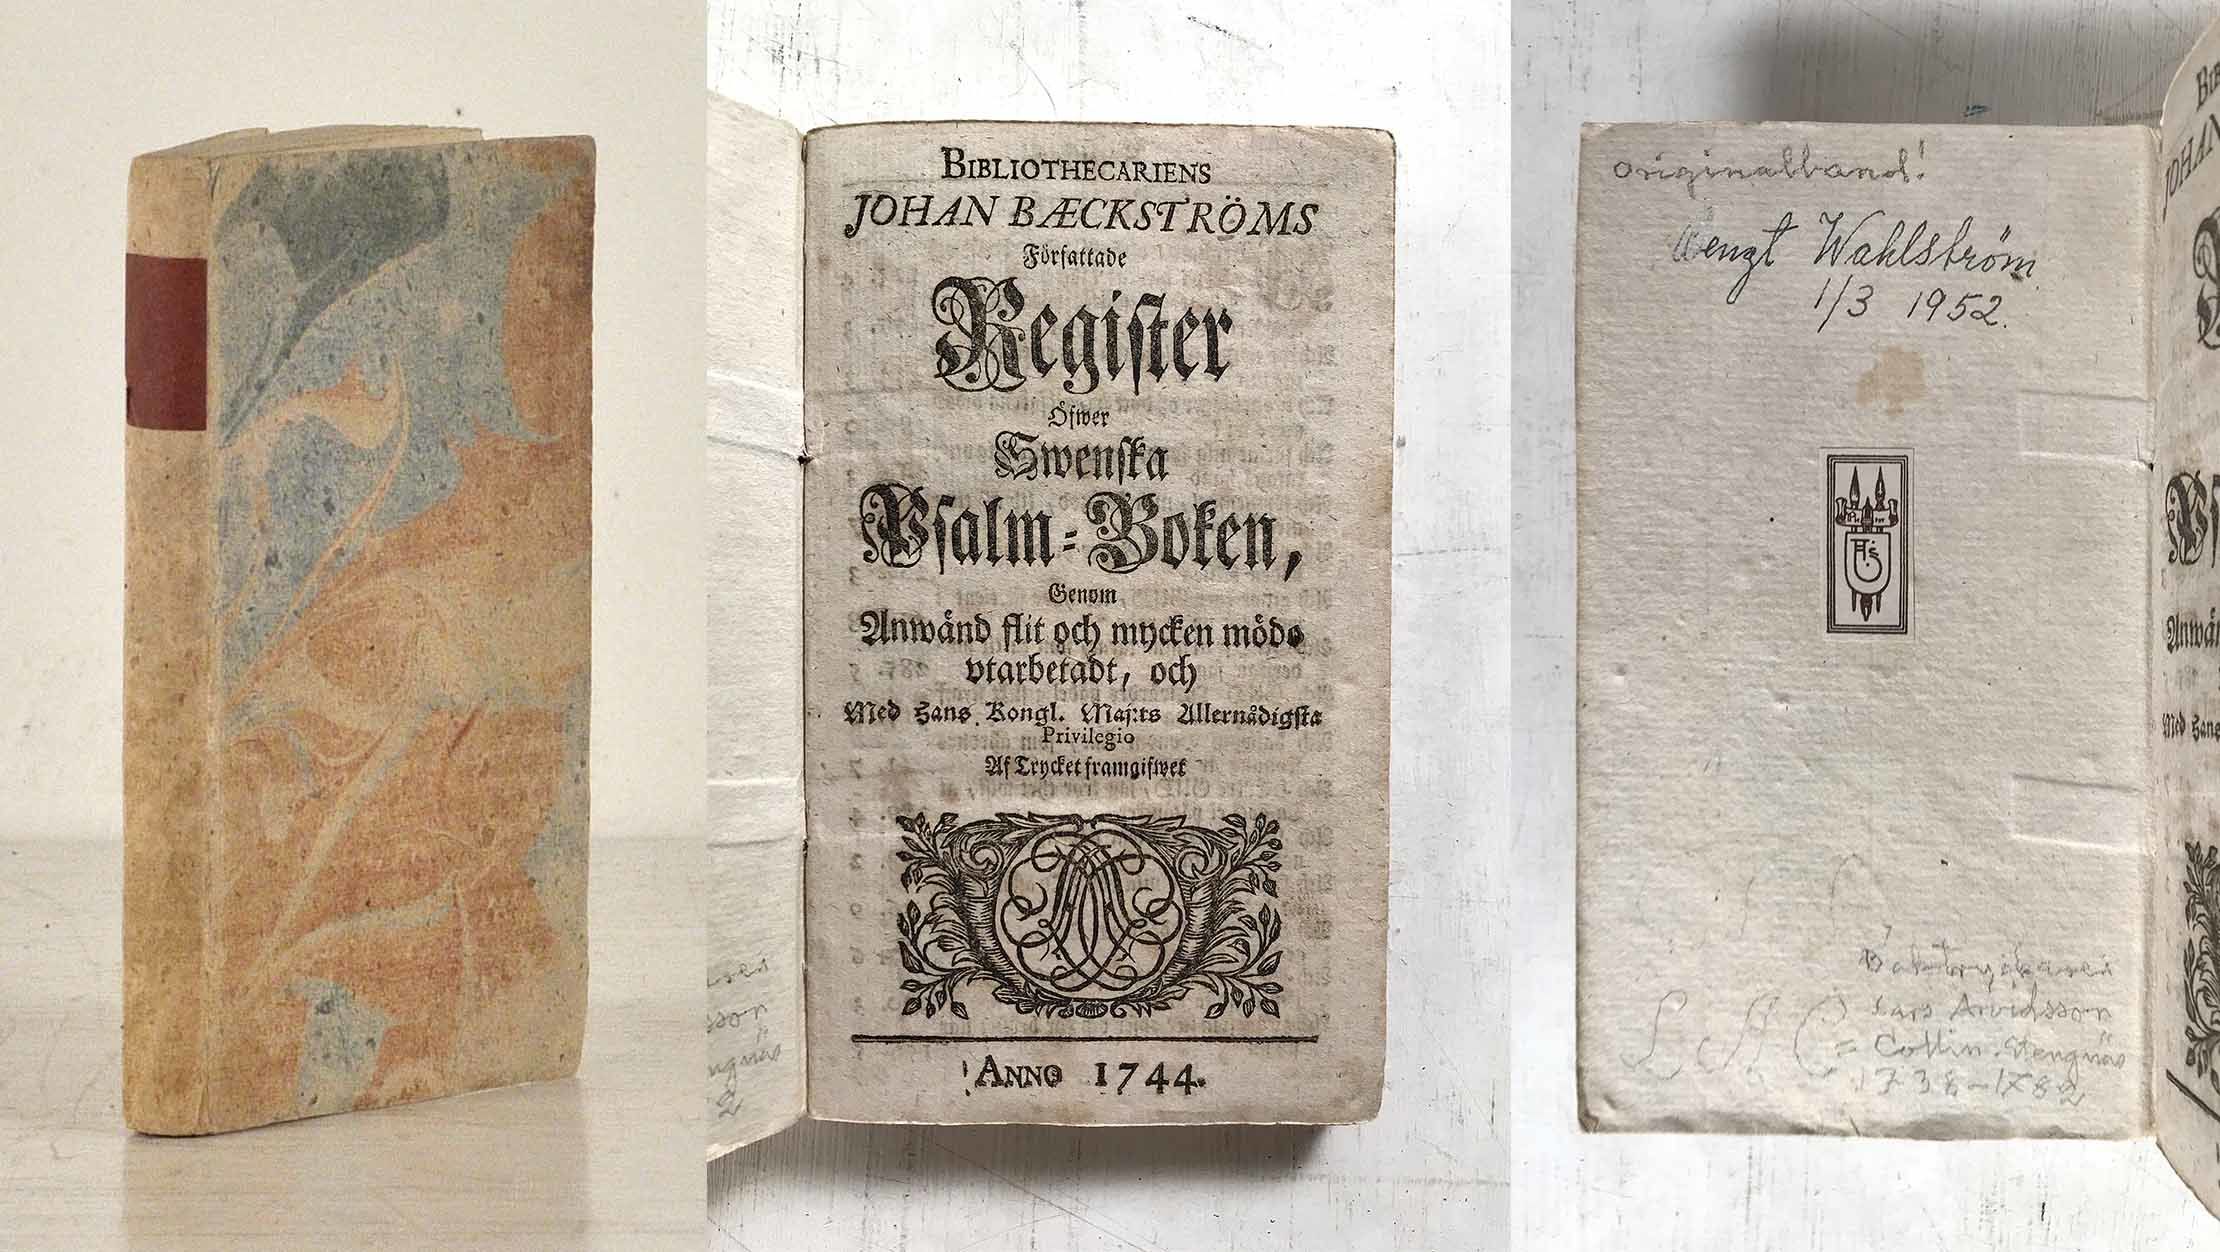 BIBLIOTHECARIENS
JOHAN BÆCKSTRÖMS
Författade
Register
Öfwer
Swenska
Psalm-Boken,
Genom
Anwänd flit och mycken mödo
vtarbetadt, och
Med Hans Kongl. Maj:ts Allernådigsta
Privilegio
Af Trycket framgifwet
ANNO 1744.
originalband!
Bengt Wahlström
1/3 1952.
Boktryckaren
Lars Arvidsson
L A C = Collin. Stengnäs
1738-1782